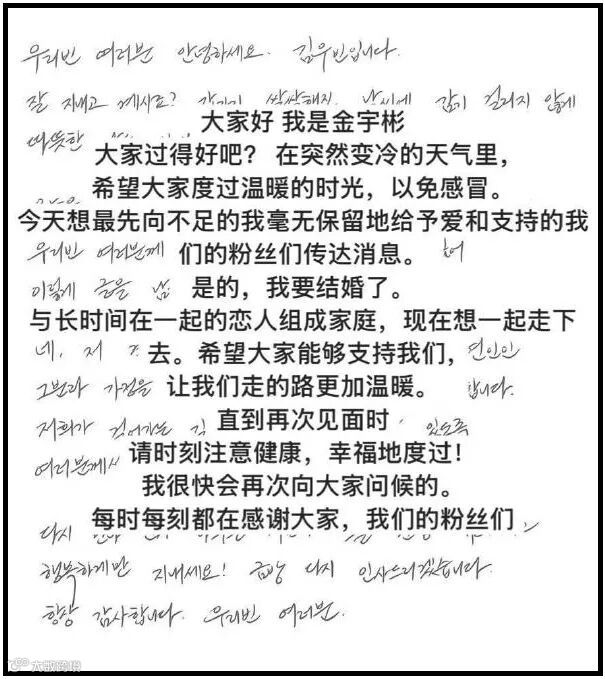 우리빈 여러분 안녕하세요. 김우빈입니다.
잘 지내고 계시죠? 갑자기 쌀쌀해진 날씨에 감기 걸리지 않게
大家好 我是金宇彬
따뜻한
大家过得好吧？ 在突然变冷的天气里，
希望大家度过温暖的时光，以免感冒。
今天想最先向不足的我毫无保留地给予爱和支持的我
우리빈 여러분께 们的粉丝们传达消息。
이렇게 글을 남 是的，我要结婚了。
与长时间在一起的恋人组成家庭，现在想一起走下
네, 저 去。希望大家能够支持我们， 연인인
그분과 가정을 让我们走的路更加温暖。 합니다.
저희가 걸어가는 길 直到再次见面时 있도록
여러분께서 请时刻注意健康，幸福地度过！
我很快会再次向大家问候的。
每时每刻都在感谢大家，我们的粉丝们
다시
행복하게만 지내세요! 금방 다시 인사드리겠습니다.
항상 감사합니다. 우리빈 여러분.